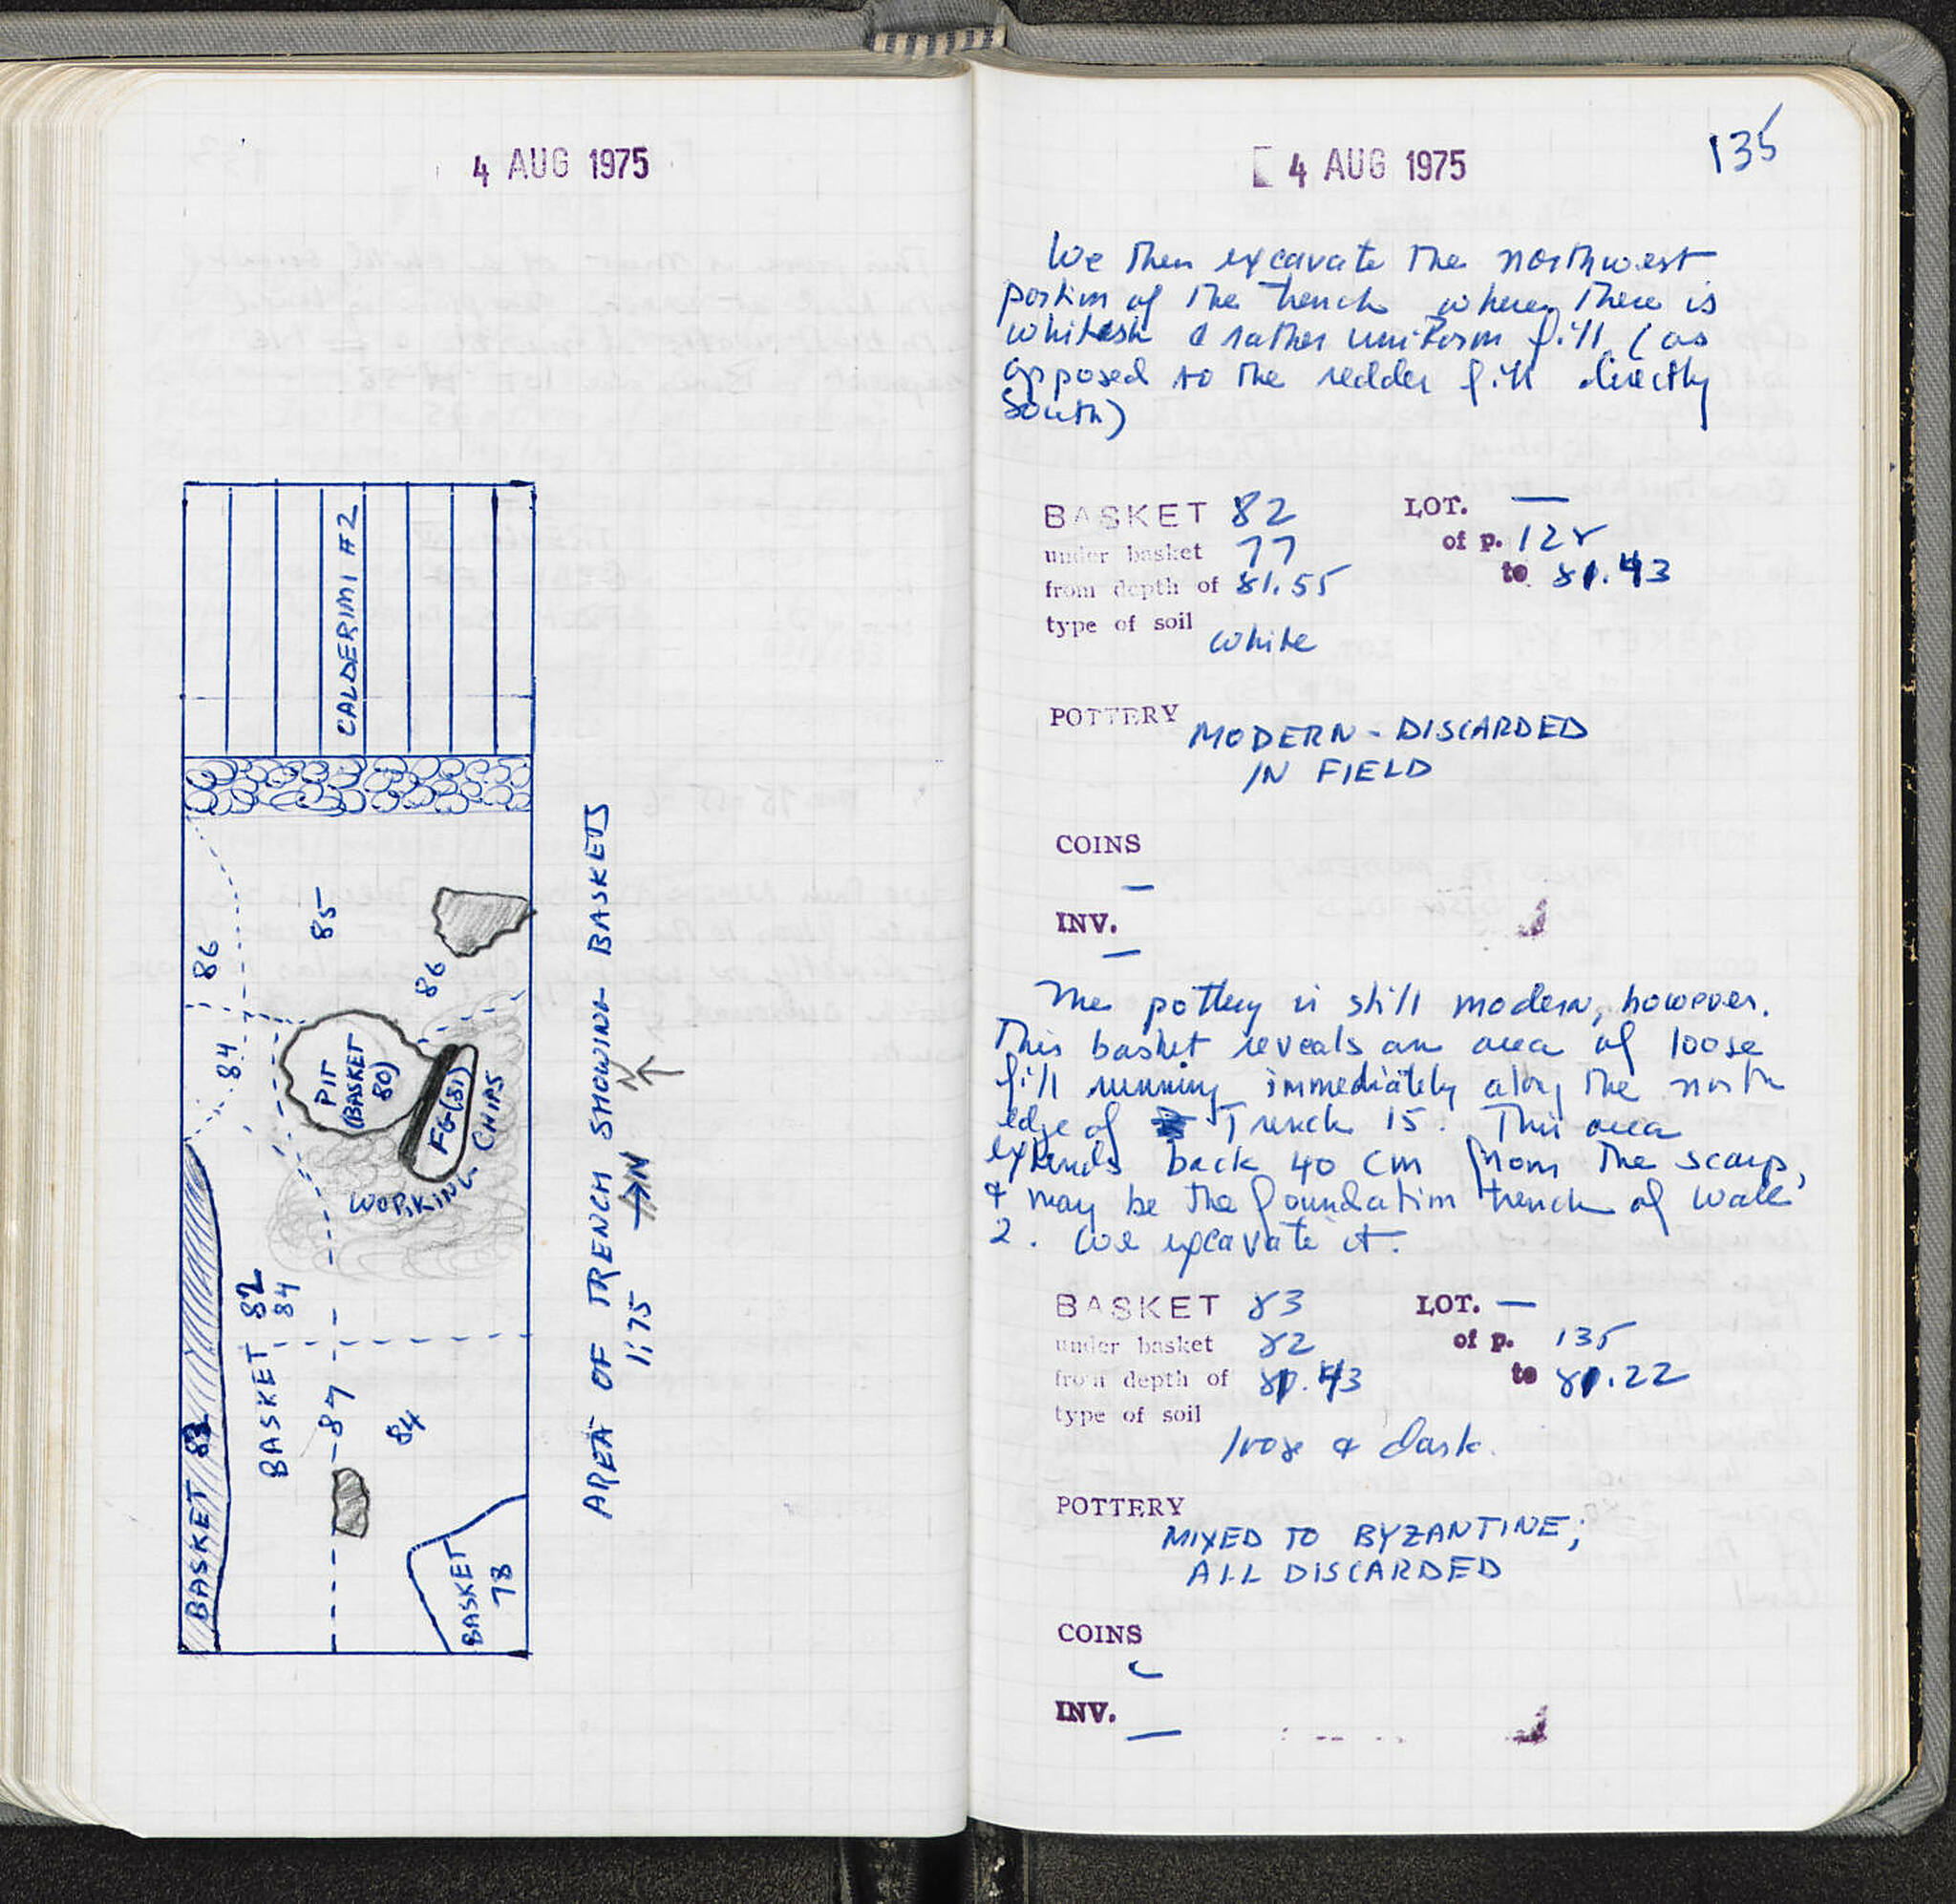 4 AUG 1975
CALDERIMI #2
85
86
86
84
PIT
(BASKET
80)
FG(81)
WORKING CHIPS
BASKET 82
84
87
84
BASKET 83
BASKET
78
AREA OF TRENCH SHOWING BASKETS
1:75
N
N
4 AUG 1975
135
We then excavate the northwest
portion of the trench where there is
whitish & rather uniform fill (as
opposed to the redder fill directly
south)
BASKET 82 LOT. —
under basket 77 of p. 128
from depth of 81.55 to 81.43
type of soil
white
POTTERY
MODERN - DISCARDED
IN FIELD
COINS
—
INV.
—
The pottery is still modern, however.
This basket reveals an area of loose
fill running immediately along the north
edge of Trench 15. This area
extends back 40 cm from the scarp,
& may be the foundation trench of wall
2. We excavate it.
BASKET 83 LOT. —
under basket 82 of p. 135
from depth of 81.43 to 81.22
type of soil
loose & dark.
POTTERY
MIXED TO BYZANTINE;
ALL DISCARDED
COINS
INV.
—